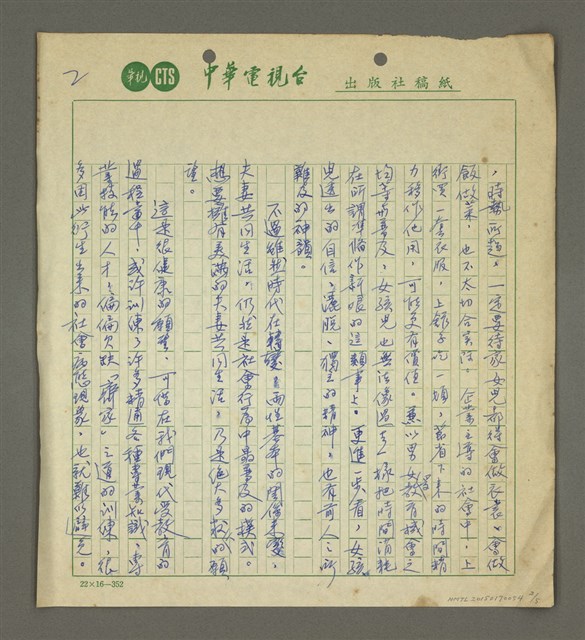 2
華視 CTS 中華電視台 出版社稿紙
，時勢所趨。一定要待家女兒都得會做衣裳、會做
飯做菜，也不太切合實際。企業主導的社會中，上
街買一套衣服，上館子吃一頓，節省下來的時間精
力移作他用，可能更有價值。兼以男女教育機會之
均等而普及，女孩兒也無法像過去一樣把時間消耗
在所謂準備作新娘的這類事上。更進一步看，女孩
兒透出的自信、灑脫、獨立的精神，也有前人之所
難及的神韻。
不過雖然時代在轉變，兩性基本的關係未變，
夫妻共同生活，仍然是社會行為中最普及的模式。
想要擁有美滿的夫妻共同生活，乃是絕大多數的願
望。
這是很健康的願望，可惜在我們現代受教育的
過程當中，或許訓練了許多精通各種專業知識、專
業技能的人才，偏偏欠缺「齊家」之道的訓練，很
多因此衍生出來的社會病態現象，也就難以避免。
22×16—352
NMTL20150170034 2/5